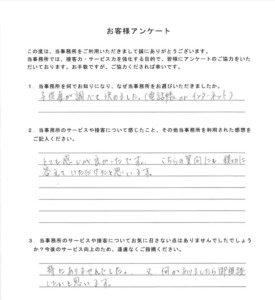 お客様アンケート
この度は、当事務所をご利用いただきまして誠にありがとうございます。
当事務所では、接客力・サービス力を強化する目的で、皆様にアンケートのご協力をいた
だいております。お手数ですが、ご協力くだされば幸いです。
1．当事務所を何でお知りになり、なぜ当事務所をお選びいただきましたか。
が調べて決めました。(電話帳 or インターネット)
2．当事務所のサービスや接客について感じたこと、その他当事務所を利用された感想を
ご記入ください。
とても感じが良かったです。こちらの質問にも親切に
答えていただけたと思います。
3．当事務所のサービスや接客についてお気に召さない点はありませんでしたでしょう
か？今後のサービス向上のため、遠慮なくご指摘ください。
特にありませんでした。又、何かありましたら御相談
したいと思います。